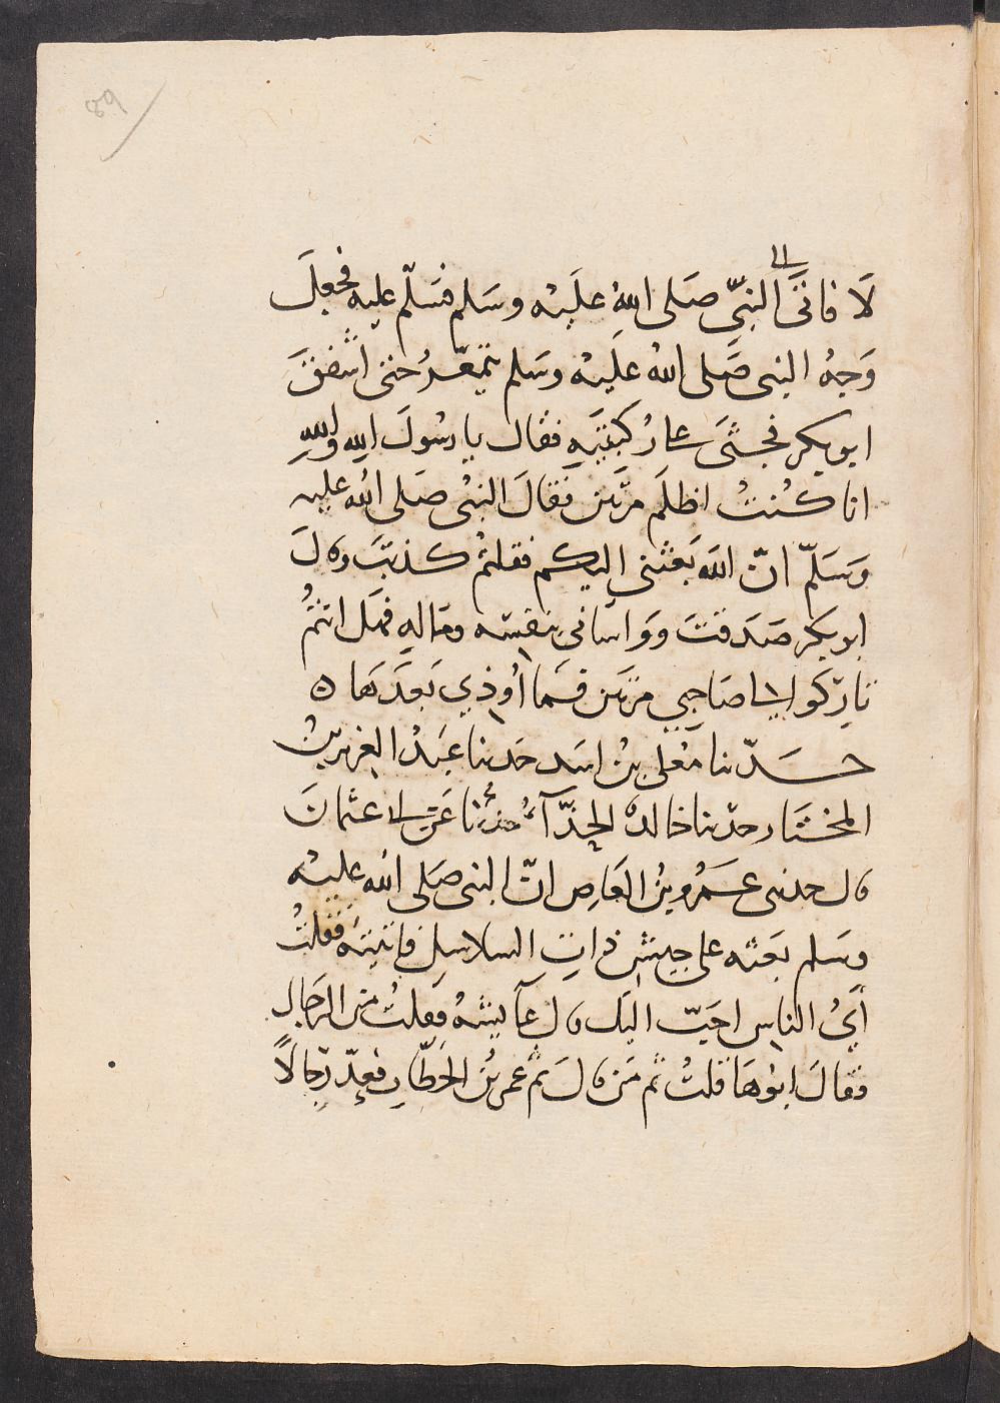 89
الى
لَا فاتَى النبيِّ صَلى اللهُ علَيْه وسَلم فسَلّم عليه فجعلَ
وَجهُ النبى صَلى اللهُ علَيْهْ وسَلم يتمَعّرُ حتى اشفقَ
ابو بكر فجثَى على رُكبتَيهِ فقال يا رسُولَ اللهِ واللهِ
انا كُنتُ اظلَم مرّتَين فقالَ النبىُ صَلى الله عليه
وَسَلّم انّ اللهَ بَعثنى اليكم فقلتُم كذبتَ وقالَ
ابو بكر صَدَقتَ ووَاسَانى بنفسِه ومَالهِ فهَل انتُمُ
تارِكوا لى صَاحِبي مرّتَين فمَا أُوذِي بَعدَهَا ه
حَدّثنا مُعلى بنُ اسَد حَدثنا عَبدُ العزيز بنُ
المختَار حدّثنا خالدٌ الحِذّآءُ حدثنا عَن ابى عثمانَ
قال حدثنى عَمرُو بنُ العَاصِ انّ النبى صَلى الله عليه
وسَلم بَعثه على جيشِ ذاتِ السلاسِلِ فاتيتهُ فقلتُ
أَيُ الناسِ احَبّ اليَك قال عآيشهُ فقلتُ من الرّجَال
فقالَ ابُوهَا قلتُ ثم مَن قالَ ثم عمر بنُ الخطّابِ فعدّ رجَالاً